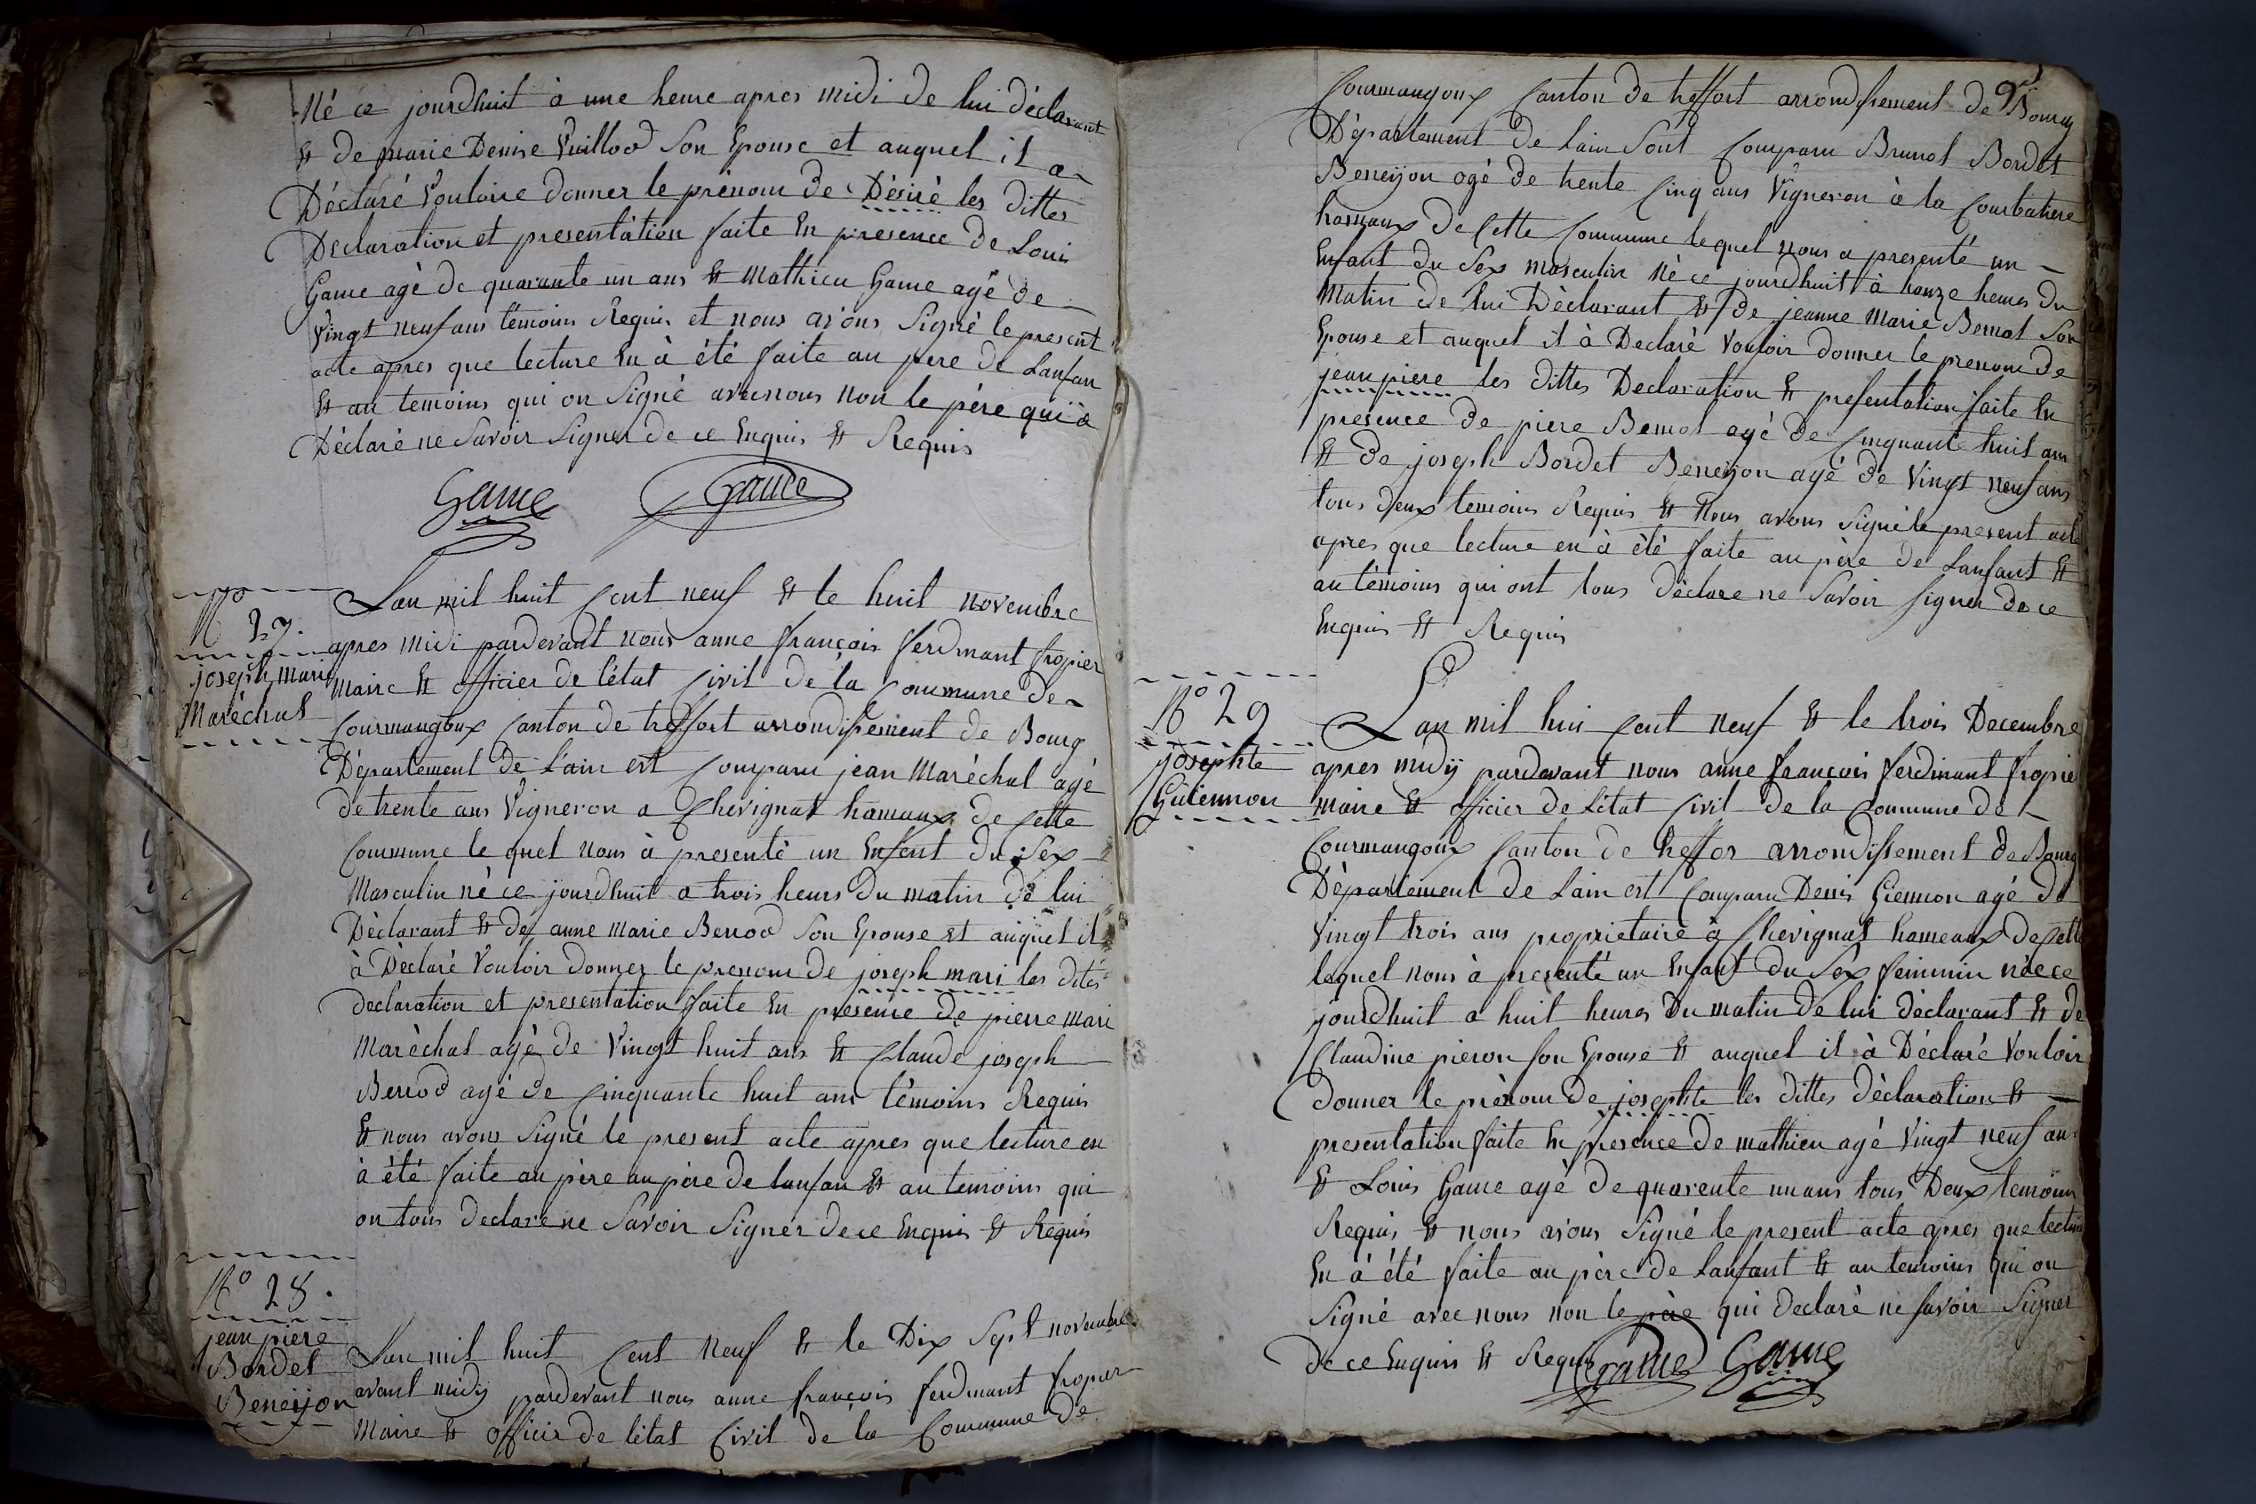 Né ce jourdhuit à une heure apres midi de lui déclarant
et de marie Denise Vuillod Son Epouse et auquel il a
Déclaré Vouloire donner le prénom de Désiré les dittes
Declaration et presentation faite En presence de Loui
Game agé de quarante un ans et mathieu Game agé de
Vingt neuf ans temoins Requis et nous avons Signé le present
acte apres que lecture En à été faite au pere de Lanfan
et au temoins qui on Signé avec nous non le père qui a
Déclaré ne Savoir Signer de ce Enquis et Requis
Game Game
N° 27.
joseph mari
Maréchal
Lan mil huit Cent neuf et le huit novembre
apres midi pardevant nous anne françois ferdinant fropier
Maire et officier de l'état Civil de la Commune de
Courmangoux Canton de treffort arrondissement de Bourg
Département de Lain est Comparu jean Maréchal agé
de trente ans Vigneron a Chevignat hameaux de Cette
Commune le quel nous à presenté un Enfent du Sex
Masculin né ce jourdhuit a trois heurs du matin de lui
Déclarant et de anne marie Berrod Son Epouse et auquel il
à Déclaré Vouloir donner le prenom de joseph mari les dités
declaration et presentation faite En presence de pierre mari
Maréchal agé de Vingt huit ans et Claude joseph
Berrod agé de Cinquante huit ans témoins Requis
et nous avons Signé le present acte apres que lecture en
à été faite au père au père de lanfan et au temoins qui
on tous declare ne Savoir Signer de ce Enquis et Requis
N° 28.
jean piere
Bordet
Beneijon
Lan mil huit Cent Neuf et le Dix Sept novembre
avant midy pardevant nous anne françois ferdinant fropier
Maire et officier de l'état Civil de la Commune de
Courmangoux Canton de treffort arrondissement de Bourg
Département de Lain Sont Comparu Brunot Bordet
Beneijon agé de trente Cinq ans Vigneron à la Courbatiere
hameaux de Cette Commune le quel nous a presenté un
Enfant du Sex masculin né ce jourdhuit à honze heures du
Matin de lui Déclarant et de jeanne Marie Bernot Son
Epouse et auquel il à Declaré Vouloir donner le prenom de
jean piere les dittes Declaration et presentation faite En
presence de piere Bernot agé de Cinquante huit ans
et de joseph Bordet Beneijon agé de Vingt neuf ans
tous deux temoins Requis et Nous avons Signé le present acte
apres que lecture en à été faite au père de Lanfant et
au témoins qui ont tous déclare ne Savoir signer de ce
Enquis et Requis
N° 29
josephte
Guiennon
Lan mil hui Cent Neuf et le trois Decembre
apres midy pardevant nous anne françois ferdinant fropie
maire et officier de L'état Civil de la Commune de
Courmangoux Canton de treffor arrondissement de Bourg
Département de Lain est Comparu Denis Giennon agé de
Vingt trois ans proprietaire à Chevignat hameaux de Cette
lequel nous à presenté un Enfant du Séx feminin née ce
jourdhuit a huit heures Du matin de lui déclarant et de
Claudine pieron son Epouse et auquel il à Déclaré Vouloir
donner le prénom de josephte les dittes déclaration et
presentation faite En presence de mathieu agé Vingt neuf ans
et Louis Game agé de quarente un ans tous Deux temoins
Requis et nous avons Signé le present acte apres que lecture
En à été faite au père de Lanfant et au temoins qui on
Signé avec nous non le père qui declaré ne savoir Signer
de ce Enquis et Requis Game Game